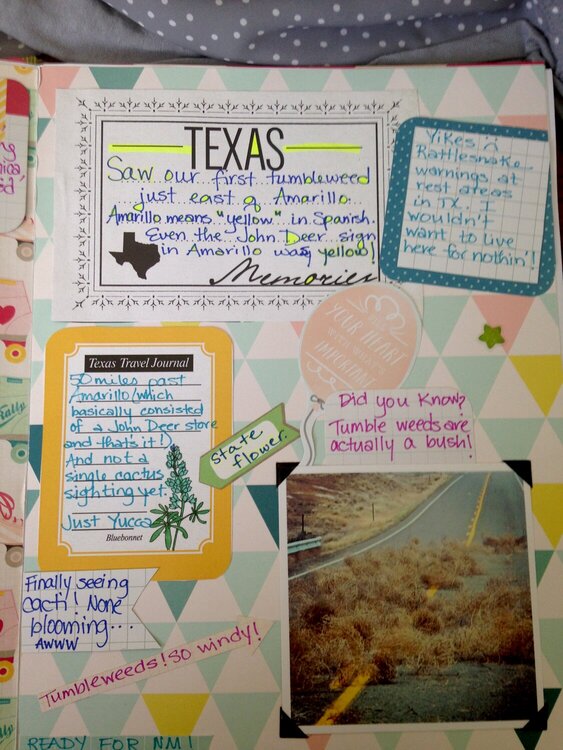 TEXAS
Saw our first tumbleweed
just east of Amarillo.
Amarillo means "yellow" in Spanish.
Even the John Deer sign
in Amarillo was yellow!
Memories
Yikes
Rattlesnake
warnings at
rest areas
in TX. I
wouldn't
want to live
here for nothin'!
YOUR HEART
WITH WHAT'S
IMPORTANT
Texas Travel Journal
50 miles past
Amarillo (which
basically consisted
of a John Deer store
and that's it!)
And not a
single cactus
sighting yet.
Just Yucca
Bluebonnet
state
flower.
Did you know?
Tumble weeds are
actually a bush!
Finally seeing
cacti! None
blooming...
Awww
Tumbleweeds! So windy!
READY FOR NM!